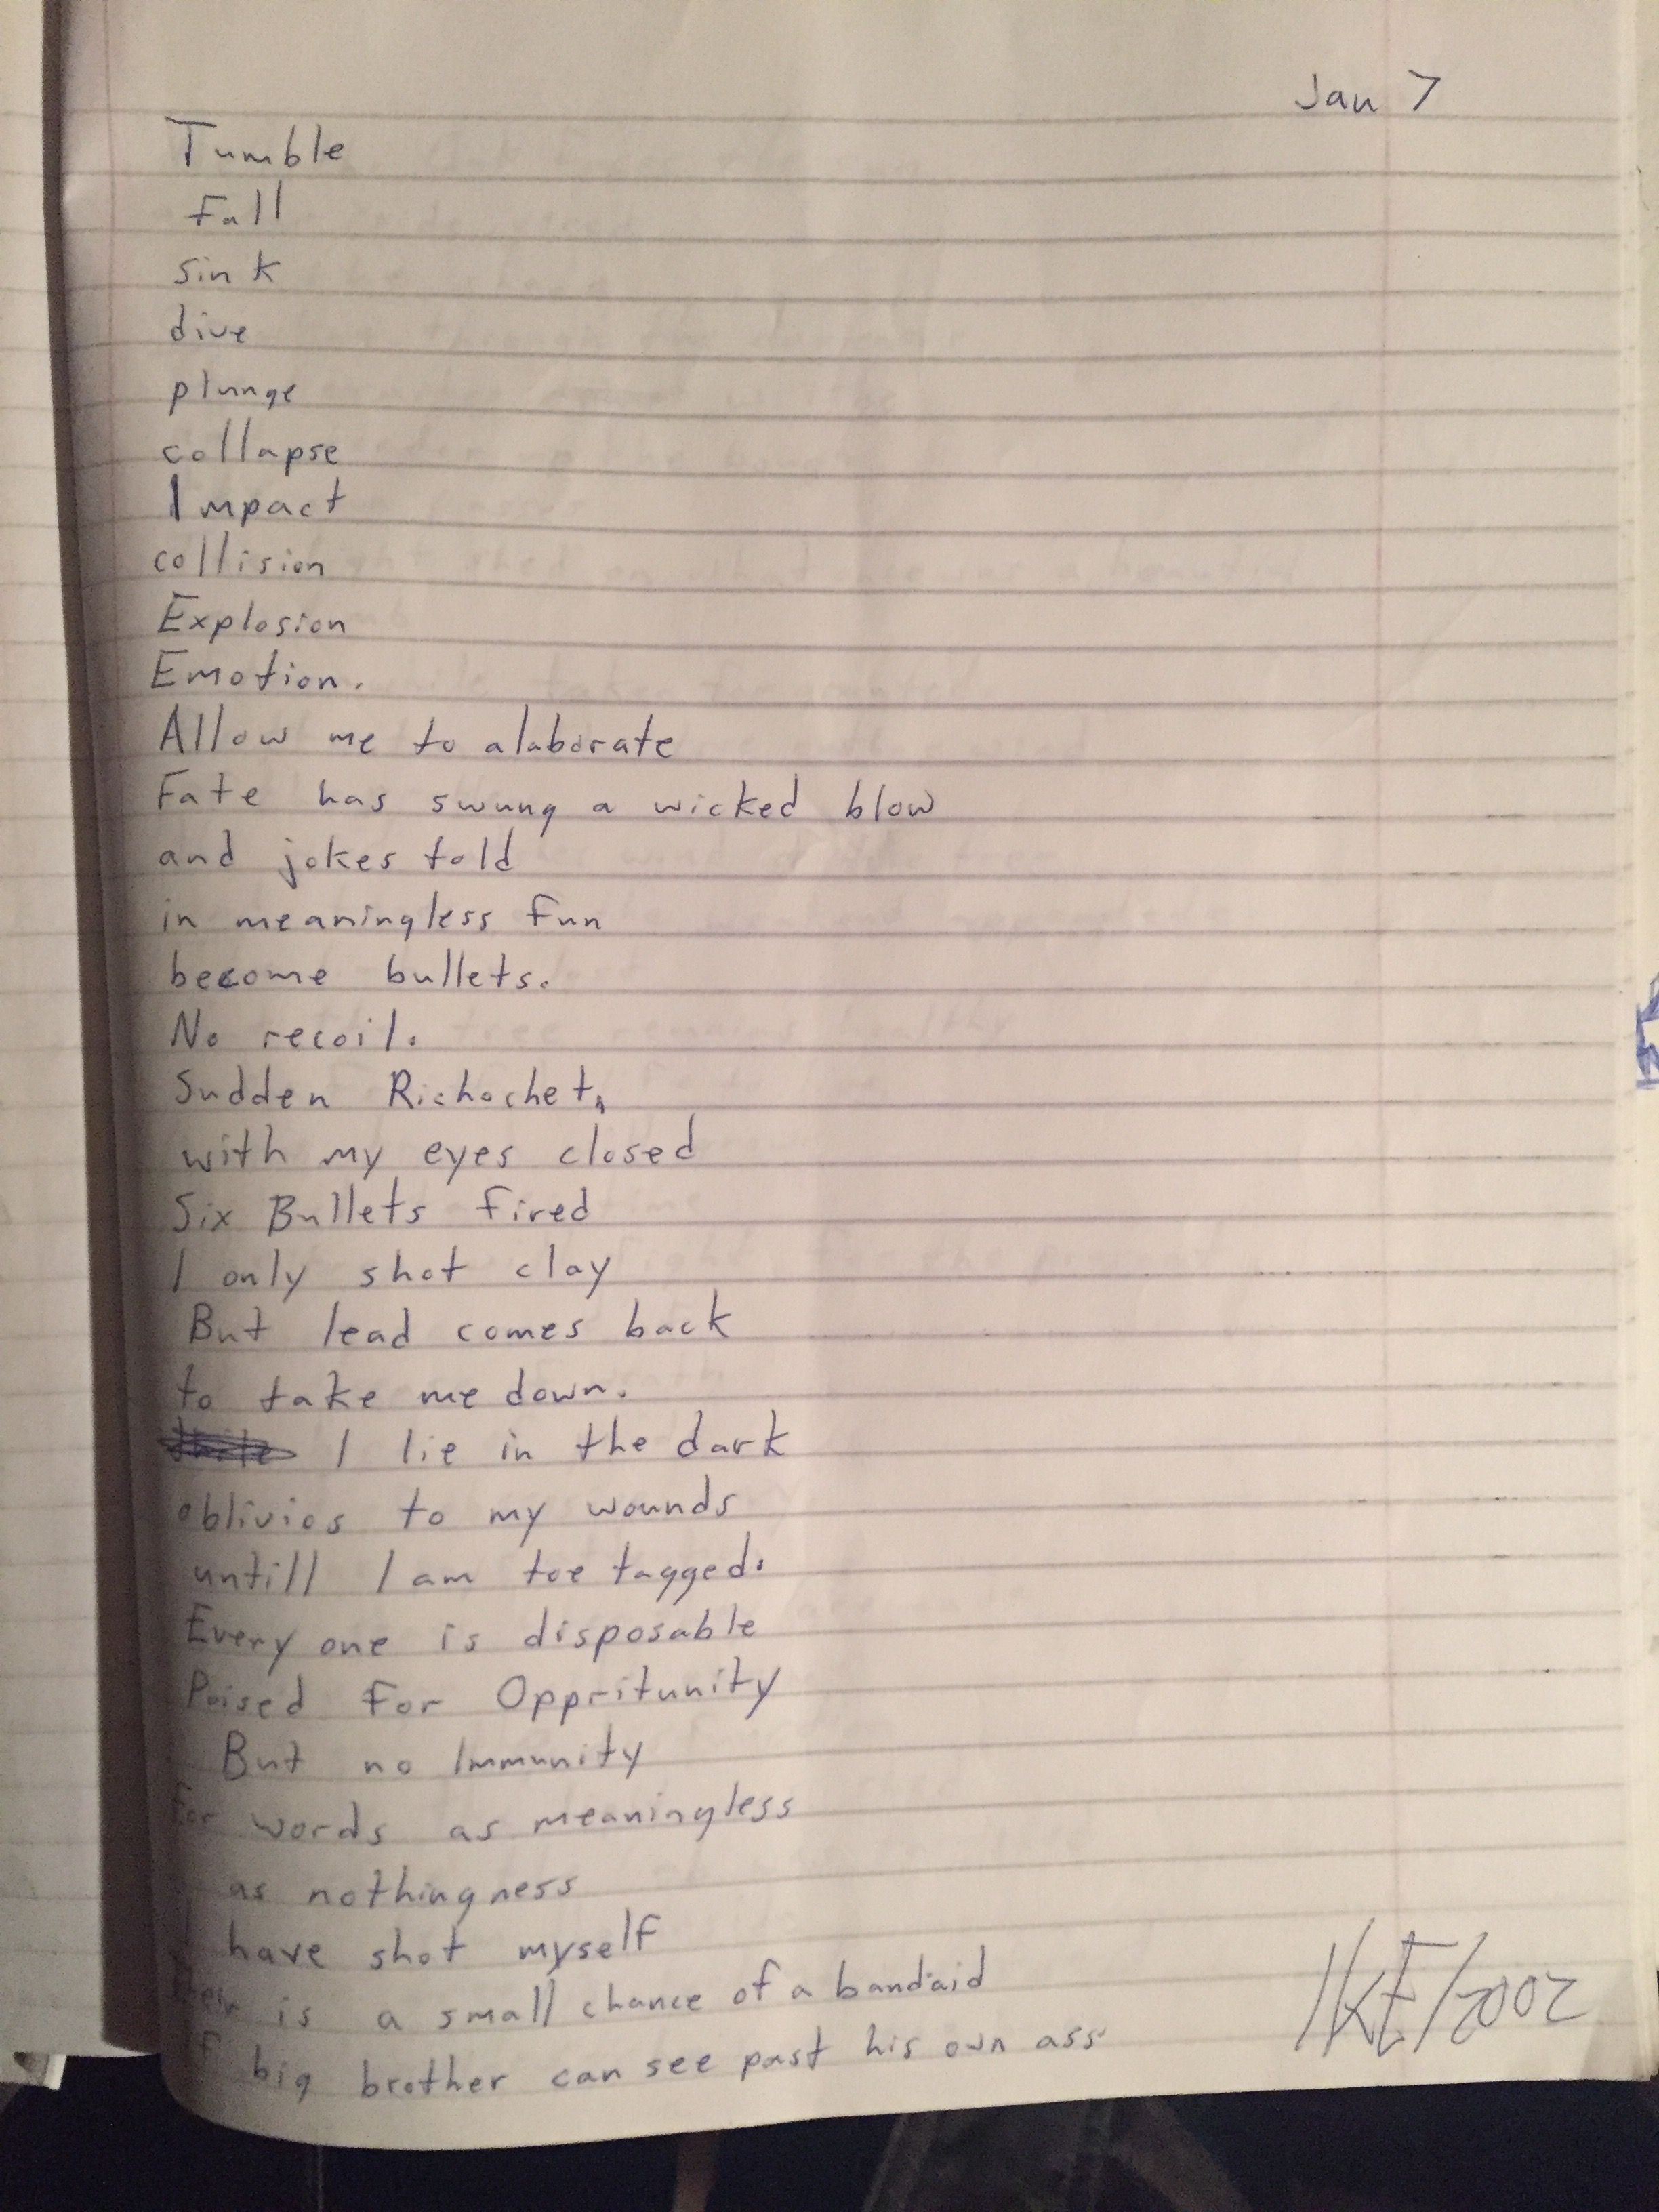 Jan 7
Tumble
Fall
sink
dive
plunge
collapse
Impact
collision
Explosion
Emotion.
Allow me to alaborate
Fate has swung a wicked blow
and jokes told
in meaningless fun
become bullets.
No recoil.
Sudden Richochet,
with my eyes closed
Six Bullets fired
I only shot clay
But lead comes back
to take me down.
I lie in the dark
oblivios to my wounds
untill I am toe tagged.
Every one is disposable
Poised For Oppritunity
But no Immunity
For words as meaningless
as nothingness
I have shot myself
is a small chance of a bandaid
if big brother can see past his own ass
IKE/2002